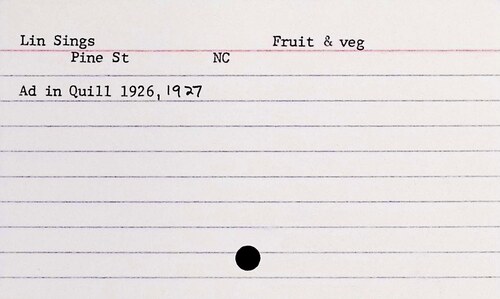 Lin Sings Fruit & veg
Pine St NC
Ad in Quill 1926, 1927